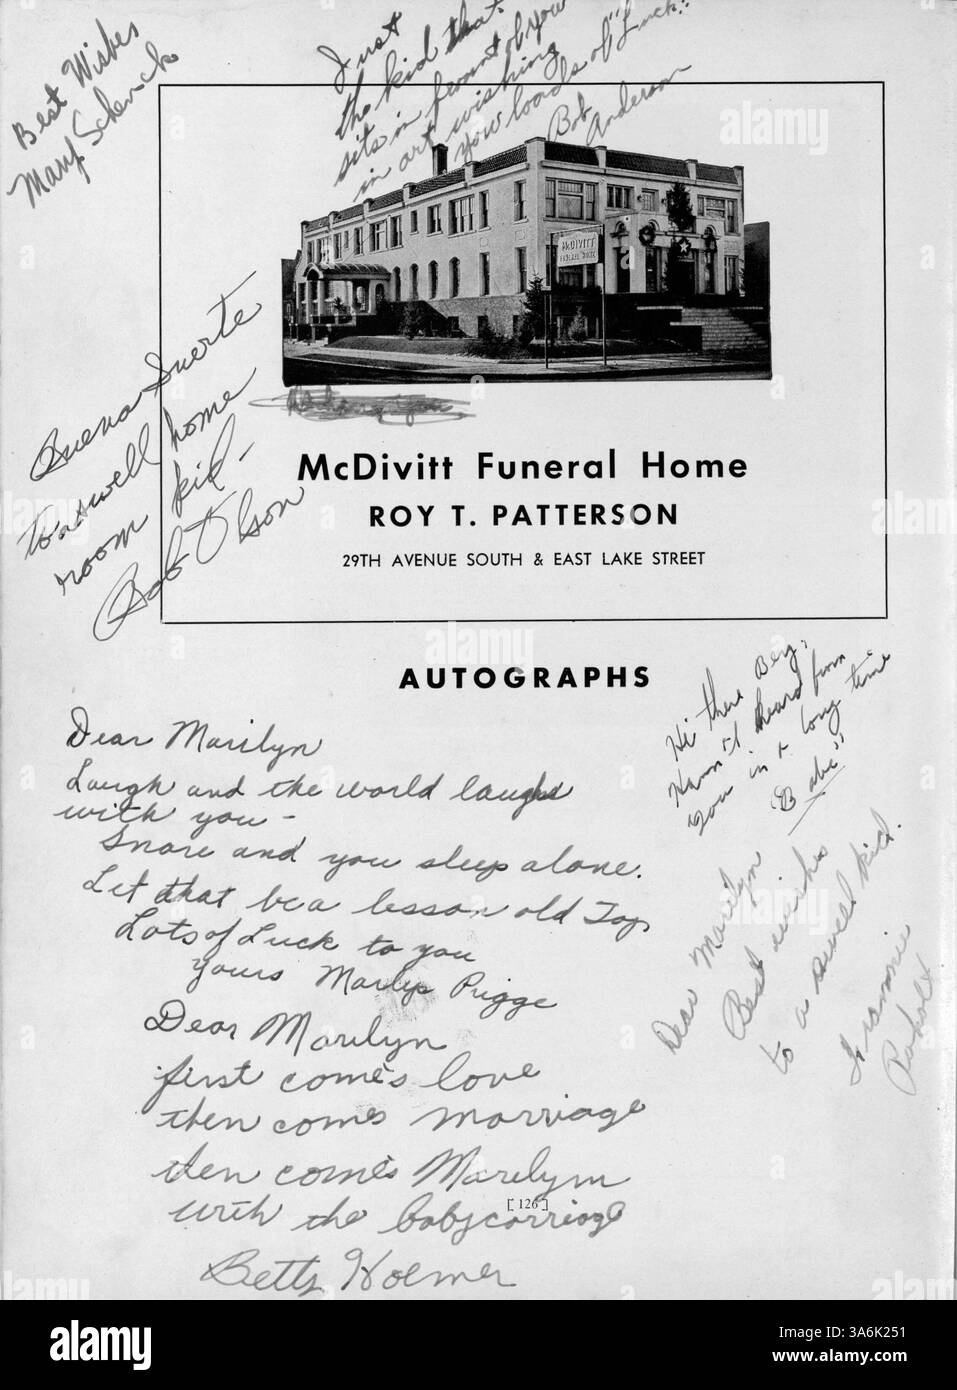 Best Wishes
Mary Schenck
Just
the kid that
sits in front of you
in art wishing
you loads of "Luck"
Bob
Anderson
McDIVITT
FUNERAL HOME
Buena Suerte
to a swell home
room kid -
Bob Olson
McDivitt Funeral Home
ROY T. PATTERSON
29TH AVENUE SOUTH & EAST LAKE STREET
AUTOGRAPHS
Hi there Berg,
Hav'n't heard from
you in a long time
"Babe"
Dear Marilyn
Laugh and the world laughs
with you -
Snore and you sleep alone.
Let that be a lesson old Top
Lots of Luck to you
yours Marlys Prigge
Dear Marilyn
Best wishes
to a swell kid.
Dear Marilyn
first come's love
then comes marriage
then come's Marilyn
with the baby carriage
[ 126 ]
Betty Hoemer
alamy
Image ID: 3A6K251
www.alamy.com